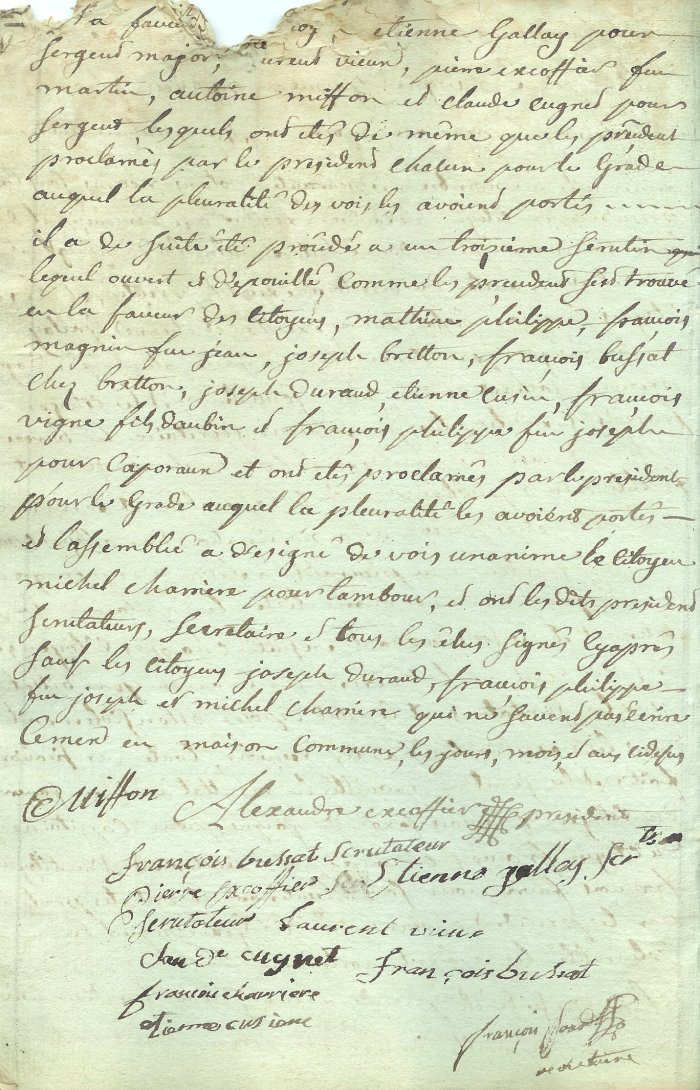 la faveur etienne Gallay pour
sergend major, urend vieux, piere excoffier feu
martin, antoine miffon et claude cugned pour
sergent lesquels ond etés de même que les precedent
proclamés par le presidend chacun pour le Grade
auquel la pleuralité des vois les avoiend portés
il a de suite été procédé a un troisieme scrutin
lequel ouvert et d'epouillé comme les precedend sest trouve
en la faveur des citoyens, mathieu philippe, françois
magnin feu jean, joseph bretton, françois bussat
chez bretton, joseph durand, etienne cusin, françois
vigne fils daubin et françois philippe feu joseph
pour Caporaux et ond etés proclamés par le president
pour le Grade auquel la pleuralité les avoient portés
et lassemblée a designé de vois unanime le citoyen
michel charriere pour tambour, et ond les dits presidend
scrutateurs, secretaire et tous les élus signés cyaprès
sauf les citoyens joseph durand, françois philippe
feu joseph et michel charriere qui ne savend pas écrire
Cemend en maison Commune, les jours, mois et ans cidesus
Miffon Alexandre excoffier president
françois bussat Scrutateur
pierre excoffier Etienne gallay ser
Scrutateur Laurent vieux
claude cugnet françois bussat
françois charriere
etienne cusin
françois
secretaire